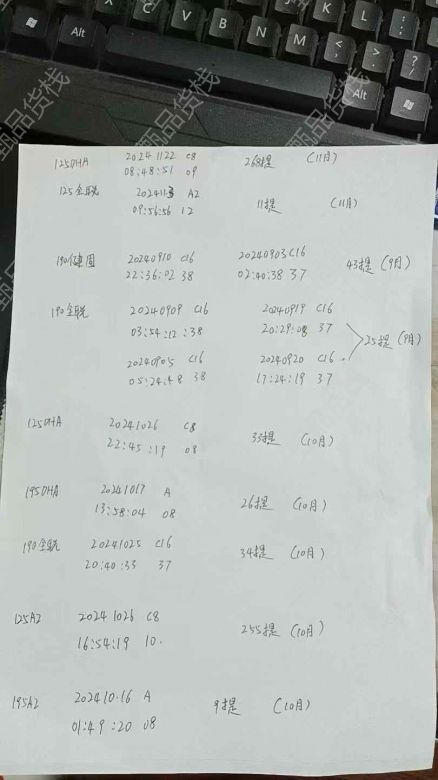 125DHA 20241122 C8 268提 (11月)
08:48:51 09
125全聪 202411 A2 11提 (11月)
09:56:56 12
190健固 20240910 C16 20240903 C16 43提 (9月)
22:36:02 38 02:40:38 37
190全聪 20240909 C16 20240919 C16
03:54:12:38 20:29:08 37
25提 (9月)
20240905 C16 20240920 C16
05:24:48 38 17:24:19 37
125DHA 20241026 C8 35提 (10月)
22:45:19 08
195DHA 20241017 A 26提 (10月)
13:58:04 08
190全聪 20241025 C16 34提 (10月)
20:40:33 37
125A2 20241026 C8 255提 (10月)
16:54:19 10.
195A2 202410.16 A 9提 (10月)
01:49:20 08
甄品货栈
Alt
K
L
B
N
M
Alt